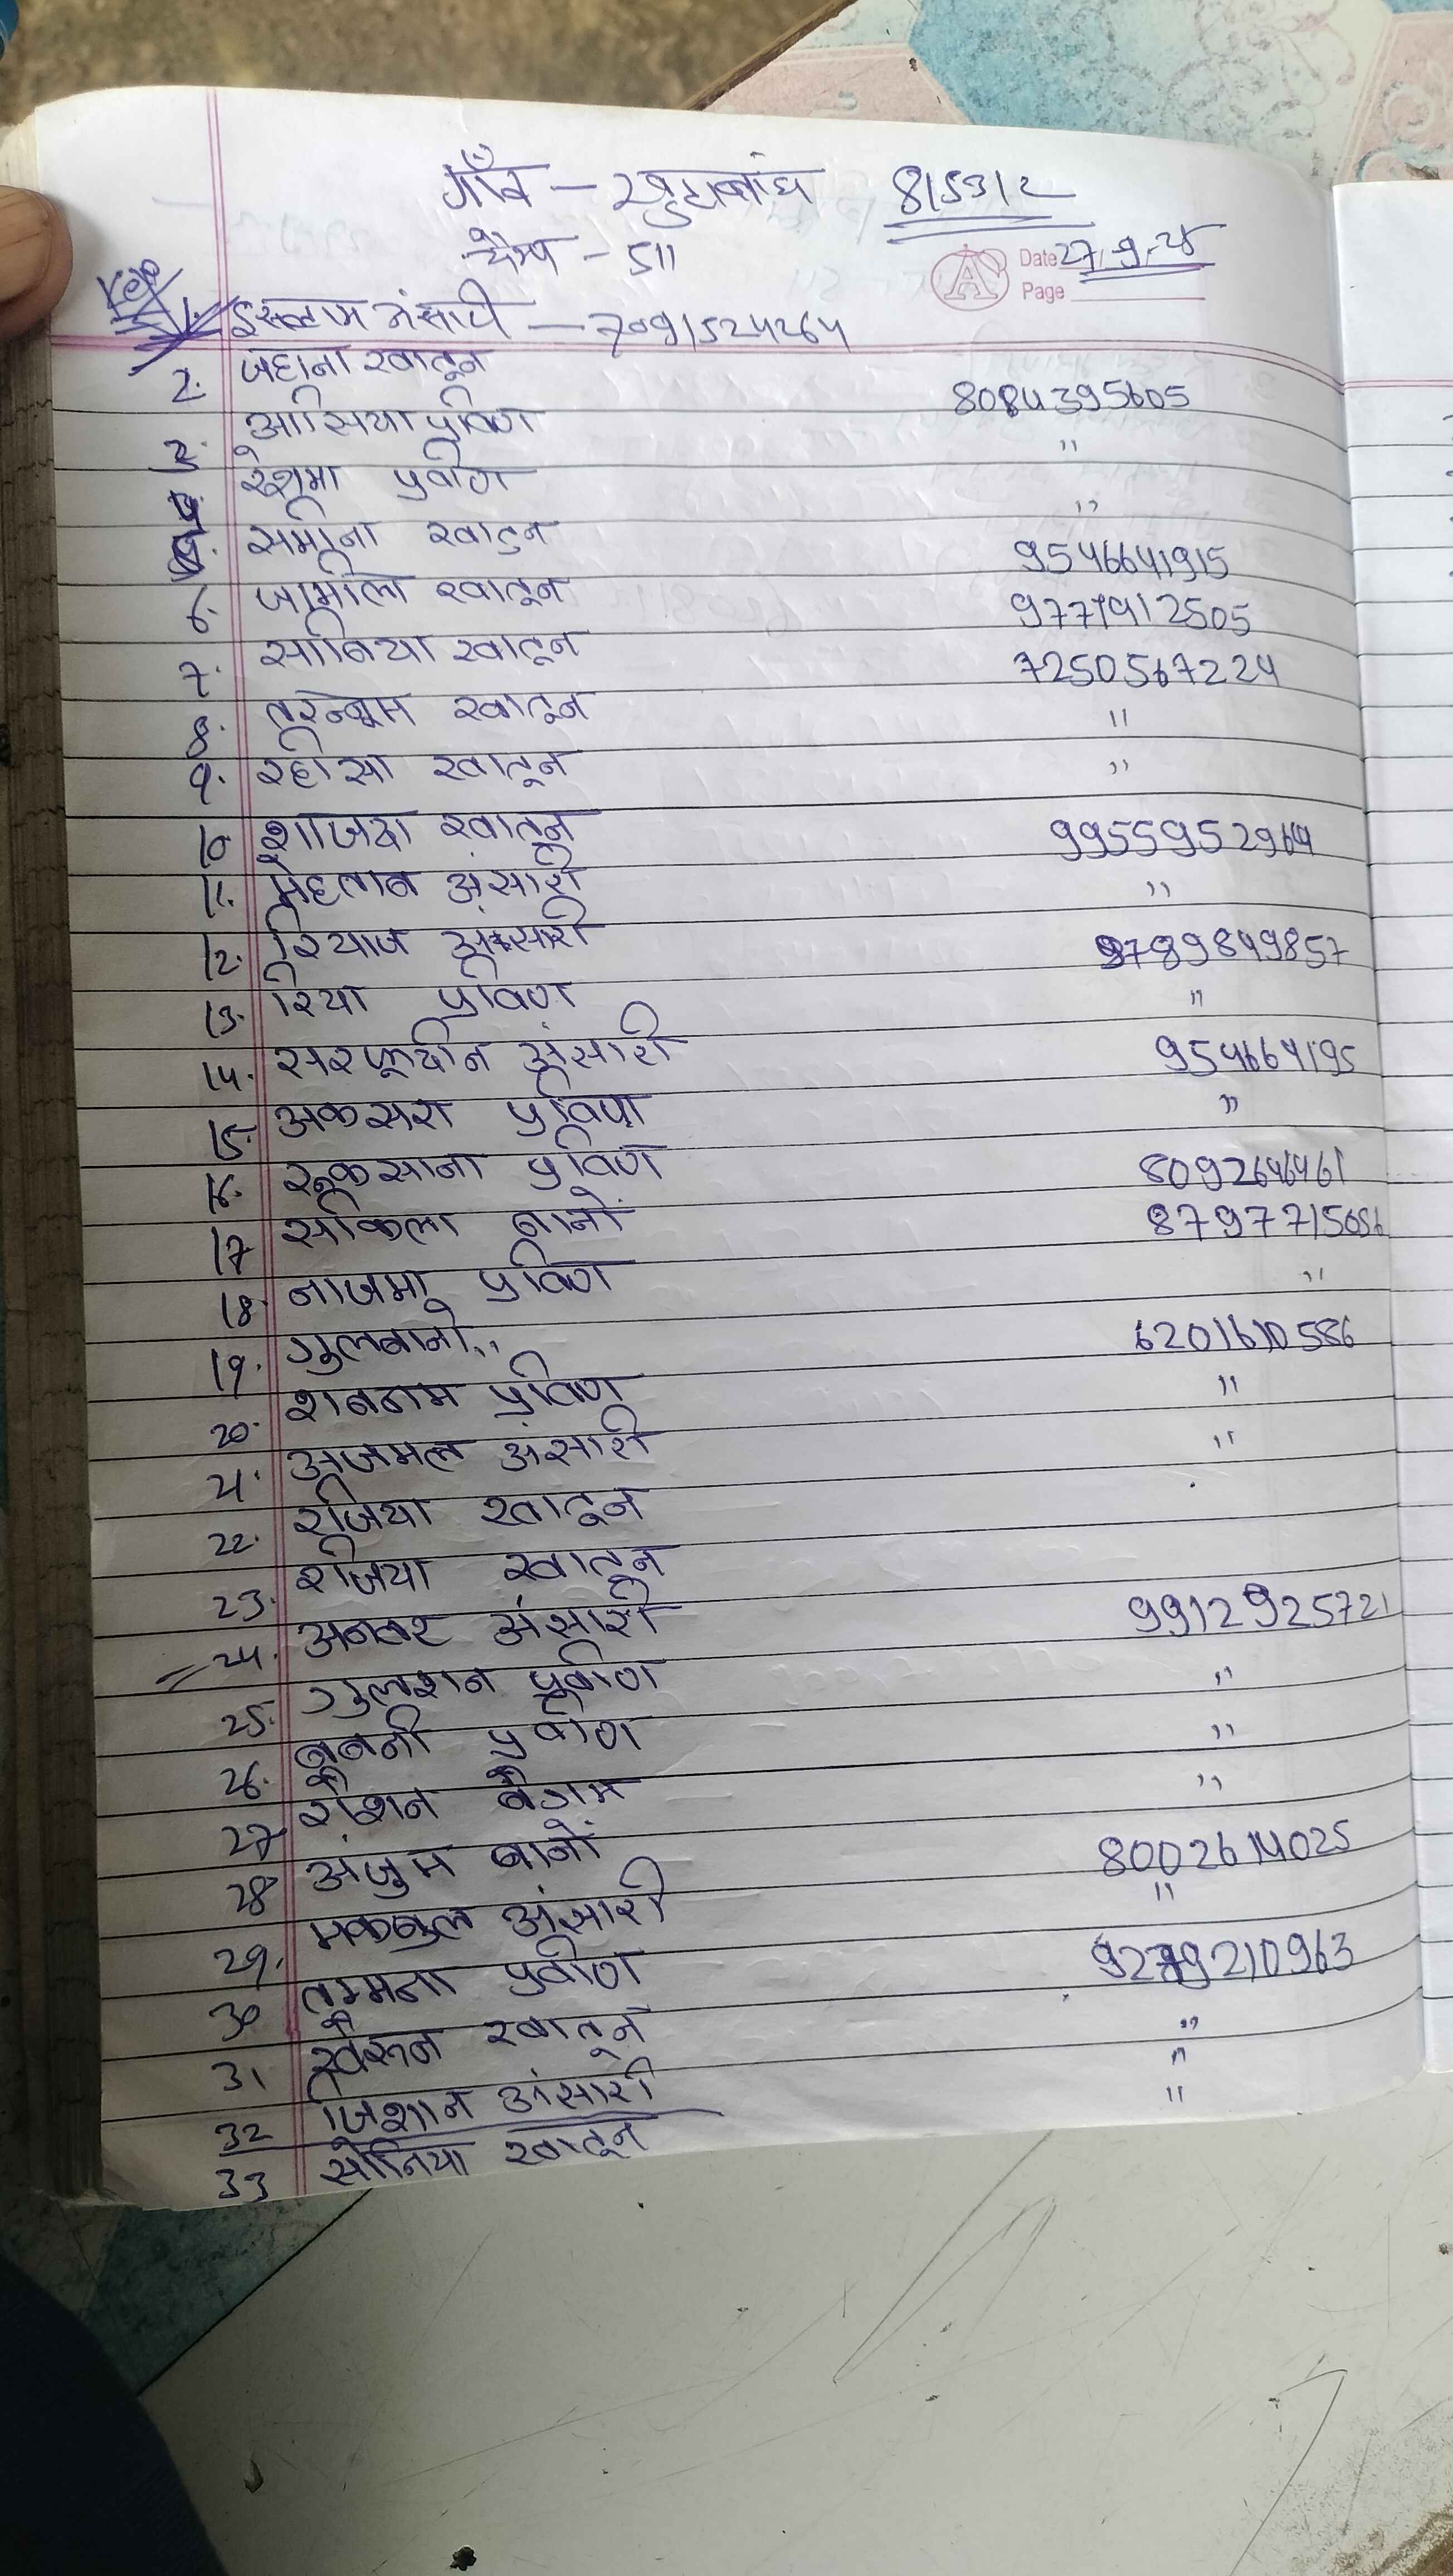 गाँव - खुटाबांध 815312
कैम्प - 511
Date 27-9-25
Page
1. इस्लाम अंसारी - 7091524264
2. जहाना खातून 8084395605
3. आसिया प्रविण "
4. रेशमा प्रवीण "
5. समीना खातुन 9546641915
6. जामीला खातून 9771912505
7. सानिया खातून 7250567224
8. तरन्नूम खातून "
9. रहीसा खातून "
10 शाजिदा खातून 9955952964
11. मेहताब अंसारी "
12. रियाज अंसारी 9789849857
13. रिया प्रविण "
14. सरफूदीन अंसारी 954664195
15. अकसरा प्रविण "
16. रूकसाना प्रविण 8092646461
17 सकिला बानों 8797715056
18. नाजमा प्रविण "
19. गुलबानो.. 6201610586
20. शबनम प्रविण "
21. अजमल अंसारी "
22. रजिया खातून
23. रजिया खातून
24. अंसारी 9912925721
25. गुलशन प्रवीण "
26. प्रवीण "
27 रौशन बेगम "
28 अंजुम बानों 8002614025
29. मकबुल अंसारी "
30 तम्मना प्रवीण 9279210963
31 खैरुन खातून "
32 जिशान अंसारी "
33 सोनिया खातून "